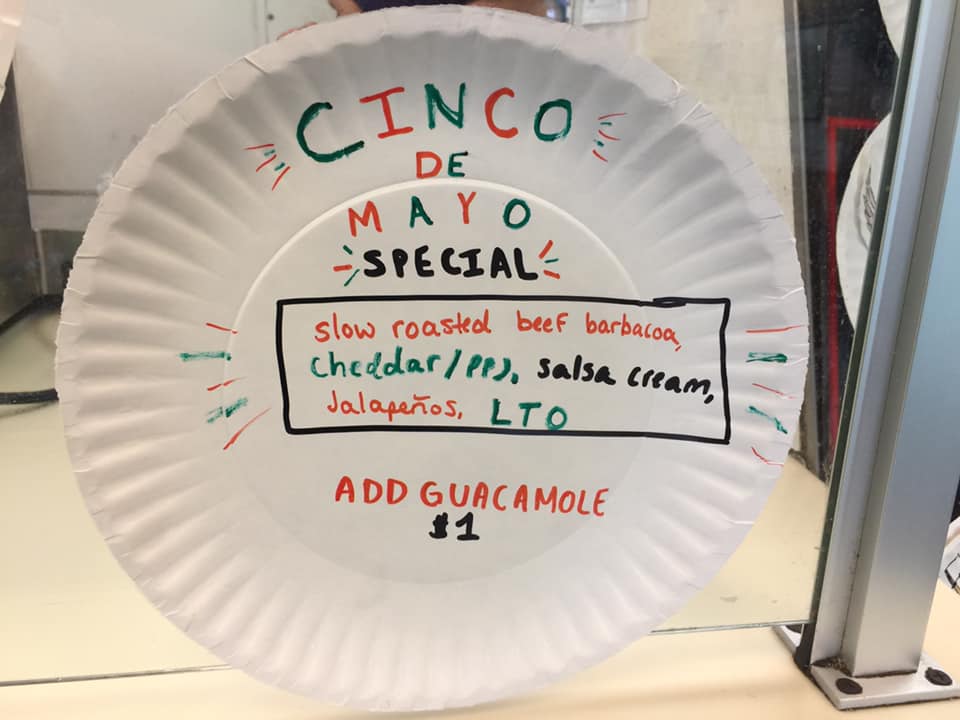 CINCO
DE
MAYO
SPECIAL
slow roasted beef barbacoa,
cheddar/PPJ, salsa cream,
Jalapeños, LTO
ADD GUACAMOLE
$1